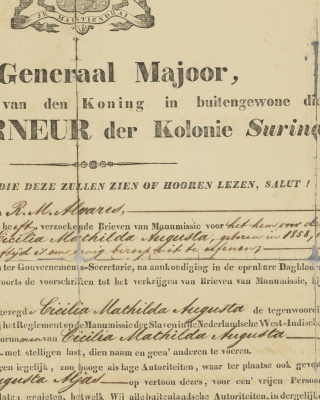 JE MAINTIENDRAI
Generaal Majoor,
van den Koning in buitengewone die
RNEUR der Kolonie Surina
DIE DEZE ZULLEN ZIEN OF HOOREN LEZEN, SALUT !
R. M. Alvares,
heeft verzocht de Brieven van Manumissie voor het
Cecilia Mathilda Augusta, geboren in 1858,
ter Gouvernements-Secretarie, na aankondiging in de openbare Dagblade
voorts de voorschriften tot het verkrijgen van Brieven van Manumissie, bij
gezegde Cecilia Mathilda Augusta de tegenwoordi
het Reglement op de Manumissie der Slaven in de Nederlandsche West-Indische
oornamen van Cicilia Mathilda Augusta
met stelligen last, dien naam en geen' anderen te voeren.
gen iegelijk, zoo hooge als lage Autoriteiten, waar ter plaatse ook geves
ugusta op vertoon dezes, voor een' vrijen Persoon
laten genieten, hetwelk Wij alle buitenlandsche Autoriteiten, in dergelijk